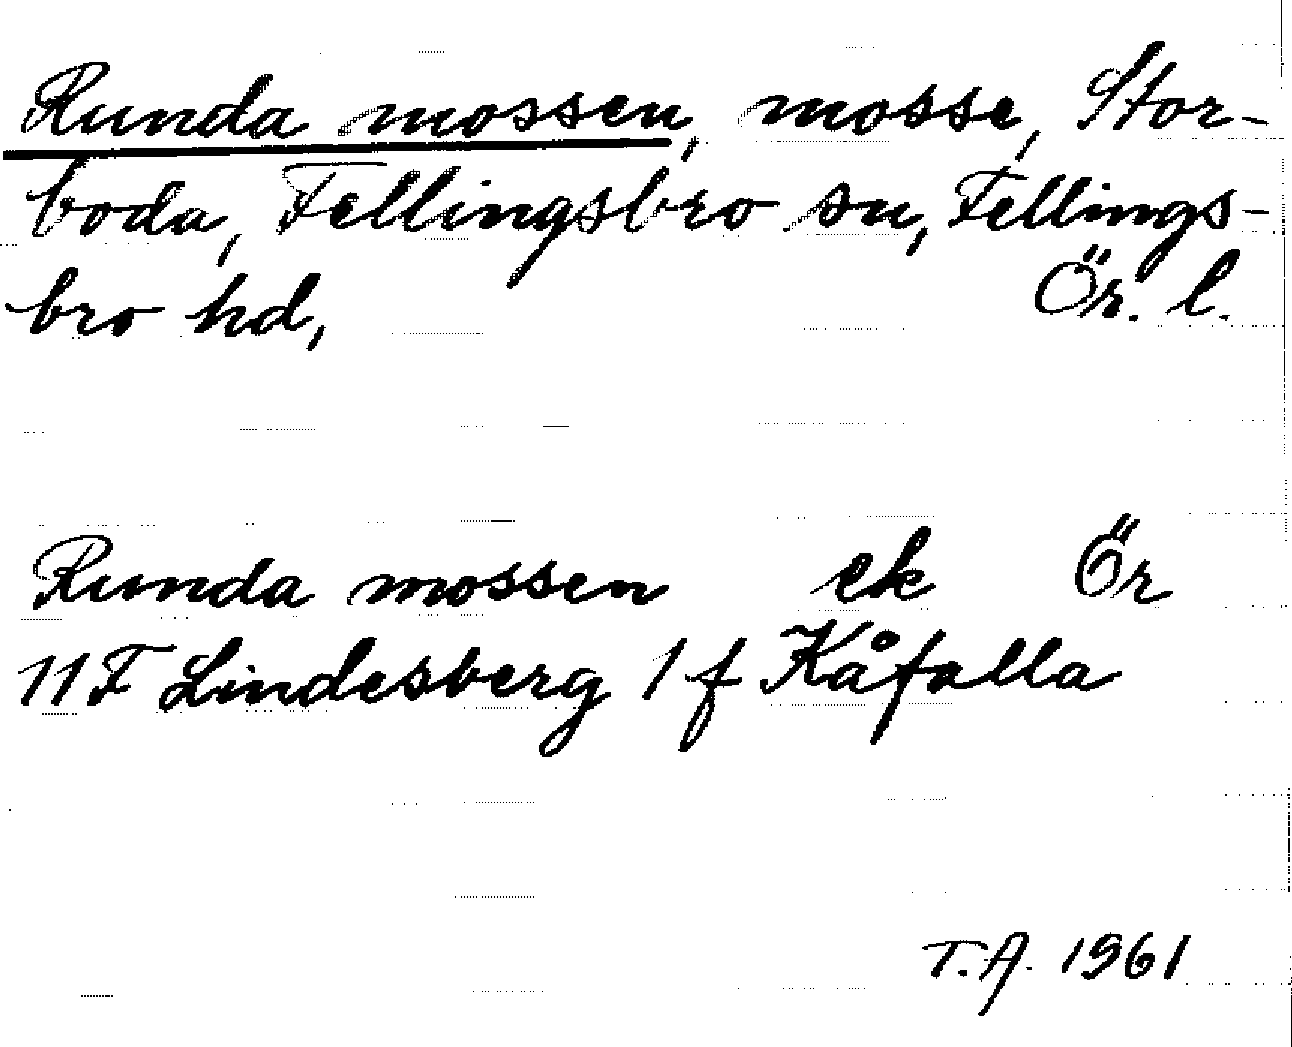 Runda mossen, mosse, Stor-
boda, Fellingsbro sn, Fellings-
bro hd, Ör. l.
Runda mossen ek Ör
11F Lindesberg 1 f Kåfalla
T.A. 1961